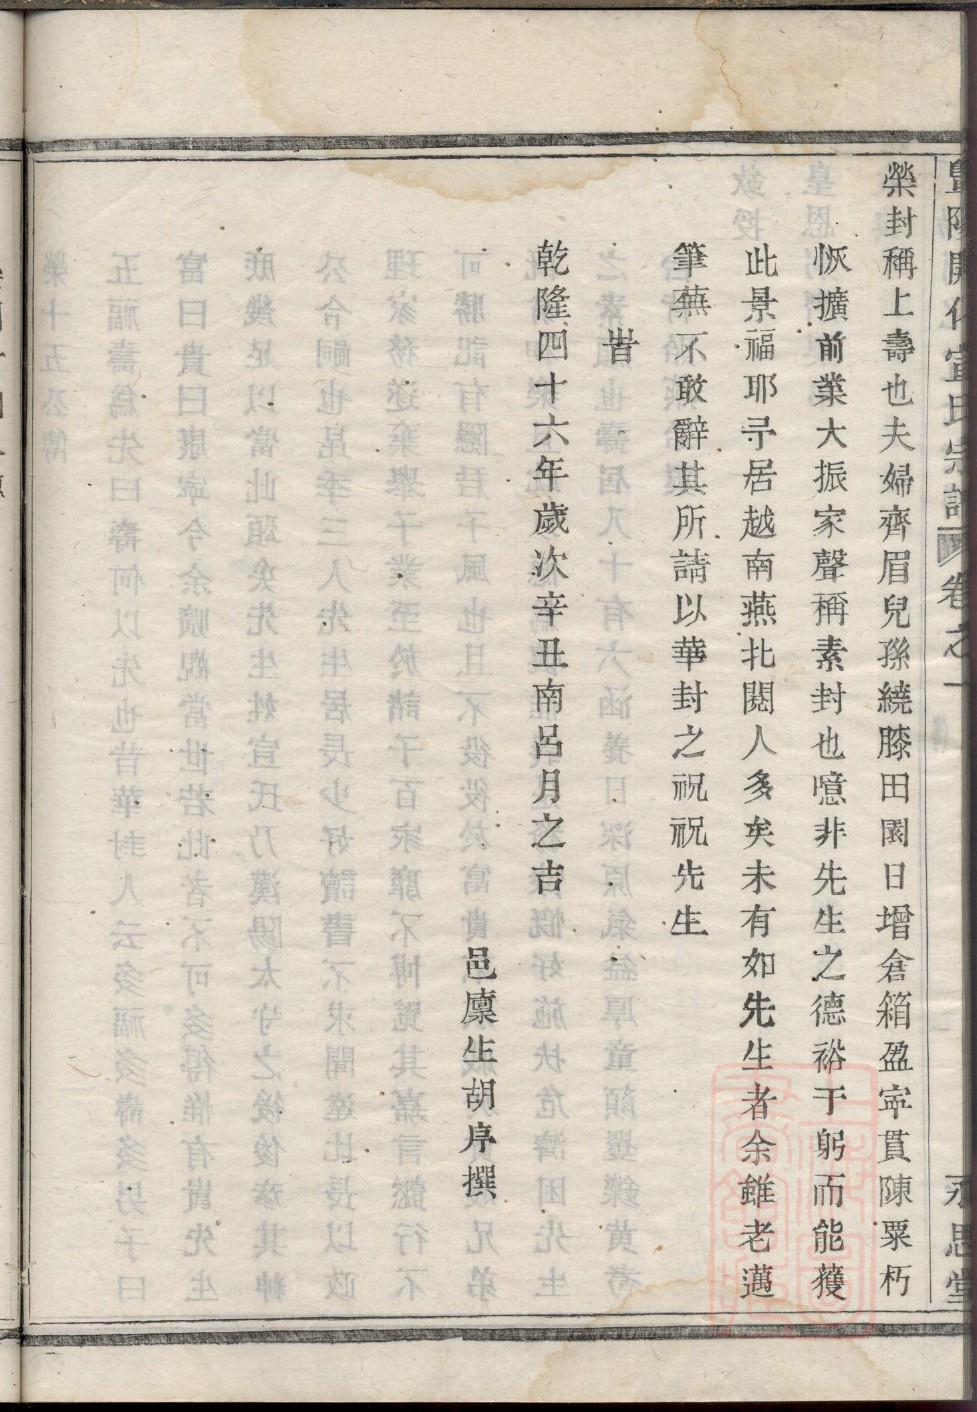 暨陽開化宣氏宗譜 卷之一 永思堂
榮封稱上壽也夫婦齊眉兒孫繞膝田園日增倉箱盈寧貫陳粟朽
恢擴前業大振家聲稱素封也噫非先生之德裕于躬而能獲
此景福耶予居越南燕北閱人多矣未有如先生者余雖老邁
筆蕪不敢辭其所請以華封之祝祝先生
旹
乾隆四十六年歲次辛丑南呂月之吉
邑廩生胡序撰